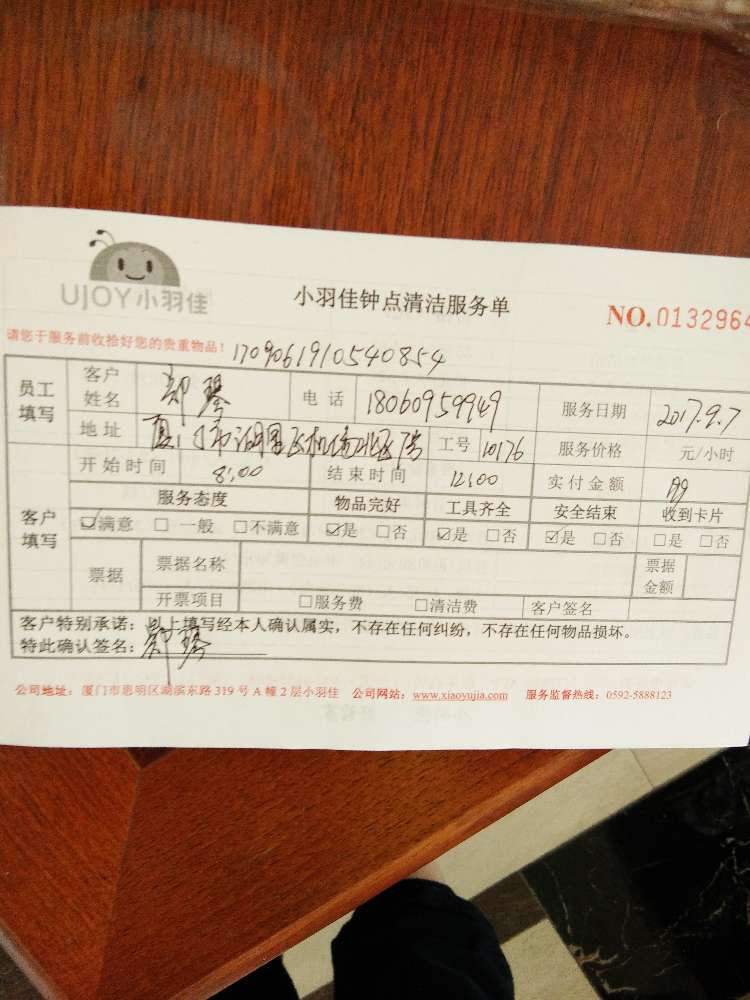 UJOY小羽佳
小羽佳钟点清洁服务单
NO.0132964
请您于服务前收拾好您的贵重物品! 1709061910540854
员工填写 客户姓名 郑琴 电话 18060959949 服务日期 2017.9.7
地址 厦门市湖里区机场北区 工号 10176 服务价格 元/小时
客户填写 开始时间 8:00 结束时间 12:00 实付金额
服务态度 物品完好 工具齐全 安全结束 收到卡片
☑满意 □一般 □不满意 ☑是 □否 ☑是 □否 ☑是 □否 □是 □否
票据 票据名称 票据金额
开票项目 □服务费 □清洁费 客户签名
客户特别承诺：以上填写经本人确认属实，不存在任何纠纷，不存在任何物品损坏。
特此确认签名：郑琴
公司地址：厦门市思明区湖滨东路 319 号 A 幢 2 层小羽佳 公司网站：www.xiaoyujia.com 服务监督热线：0592-5888123